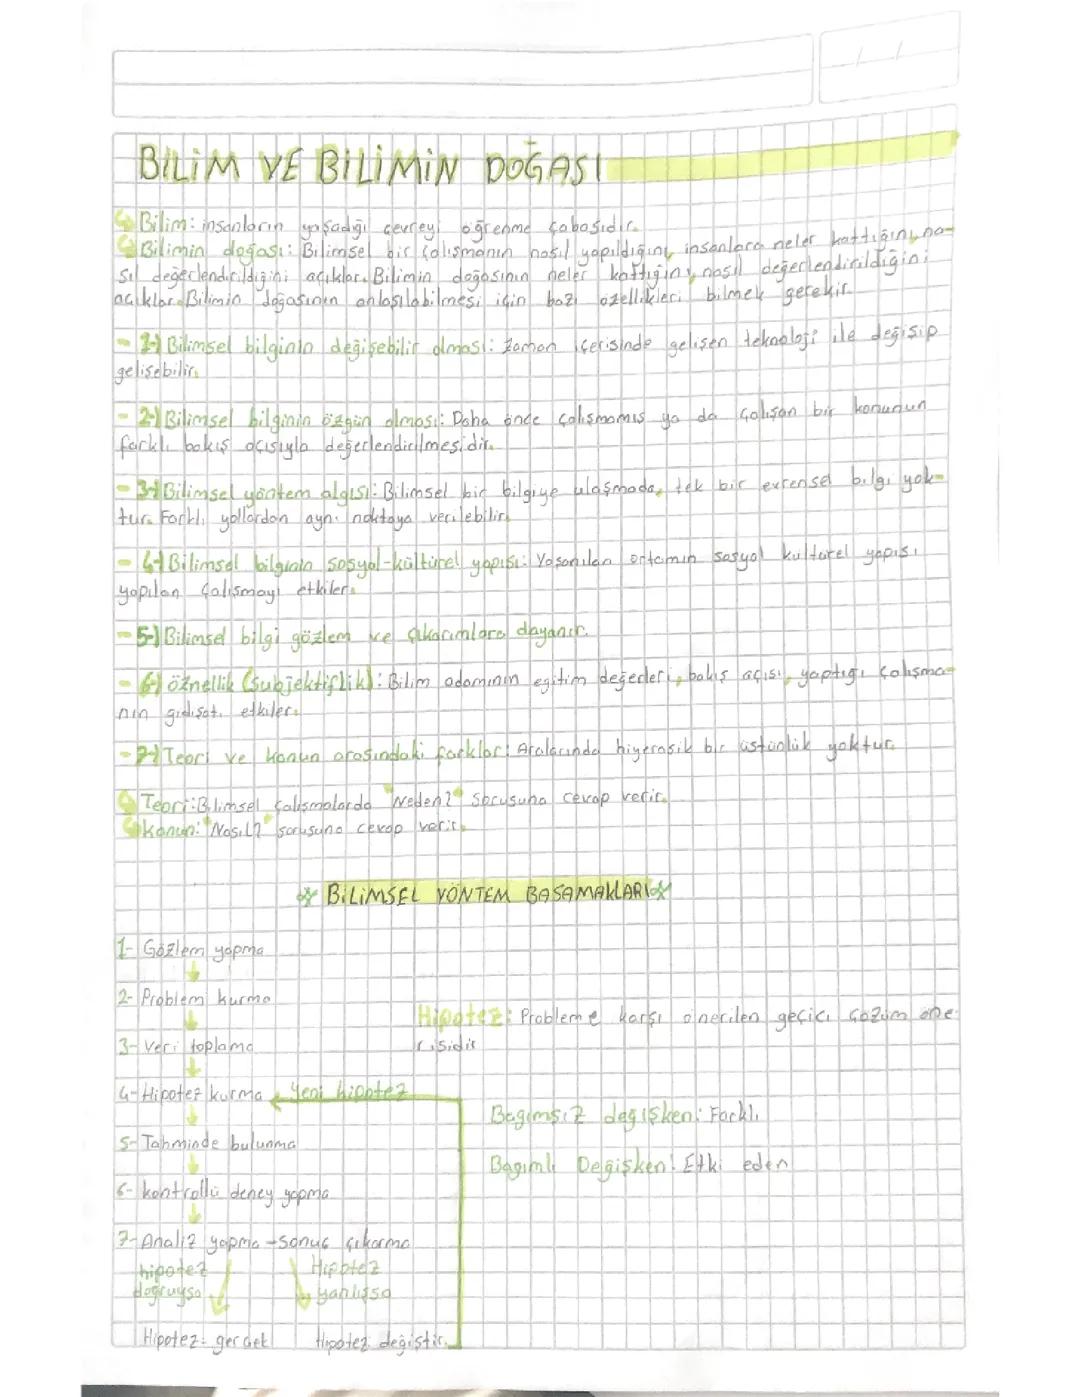 BİLİM VE BİLİMİN DOĞASI
Bilim: insanların yaşadığı çevreyi öğrenme çabasıdır.
Bilimin doğası: Bilimsel bir çalışmanın nasıl yapıldığını, insanlara neler kattığını, na-
sıl değerlendirildiğini açıklar. Bilimin doğasının neler kattığını, nasıl değerlendirildiğini
açıklar. Bilimin doğasının anlaşılabilmesi için bazı özellikleri bilmek gerekir.
- 1-) Bilimsel bilginin değişebilir olması: zaman içerisinde gelişen teknoloji ile değişip
gelişebilir.
- 2-) Bilimsel bilginin özgün olması: Daha önce çalışmamış ya da çalışan bir konunun
farklı bakış açısıyla değerlendirilmesidir.
- 3-) Bilimsel yöntem algısı: Bilimsel bir bilgiye ulaşmada, tek bir evrensel bilgi yok-
tur. Farklı yollardan aynı noktaya verilebilir.
- 4-) Bilimsel bilginin sosyal-kültürel yapısı: Yaşanılan ortamın sosyal kültürel yapısı
yapılan çalışmayı etkiler.
- 5-) Bilimsel bilgi gözlem ve çıkarımlara dayanır.
- 6-) öznellik (subjektiflik): Bilim adamının eğitim değerleri, bakış açısı, yaptığı çalışma-
nın gidişatı etkiler.
- 7-) Teori ve kanun arasındaki farklar: Aralarında hiyeraşik bir üstünlük yoktur.
Teori: Bilimsel çalışmalarda "Neden?" sorusuna cevap verir.
Kanun: "Nasıl?" sorusuna cevap verir.
BİLİMSEL YÖNTEM BASAMAKLARI
1- Gözlem yapma
2- Problem kurma
Hipotez: Probleme karşı önerilen geçici çözüm öne-
risidir
3- Veri toplama
4- Hipotez kurma Yeni hipotez
Bağımsız değişken: Farklı
5- Tahminde bulunma
Bağımlı Değişken: Etki eden
6- kontrollü deney yapma
7- Analiz yapma - sonuç çıkarma
hipotez Hipotez
doğruysa yanlışsa
Hipotez: gerçek Hipotez değiştir.